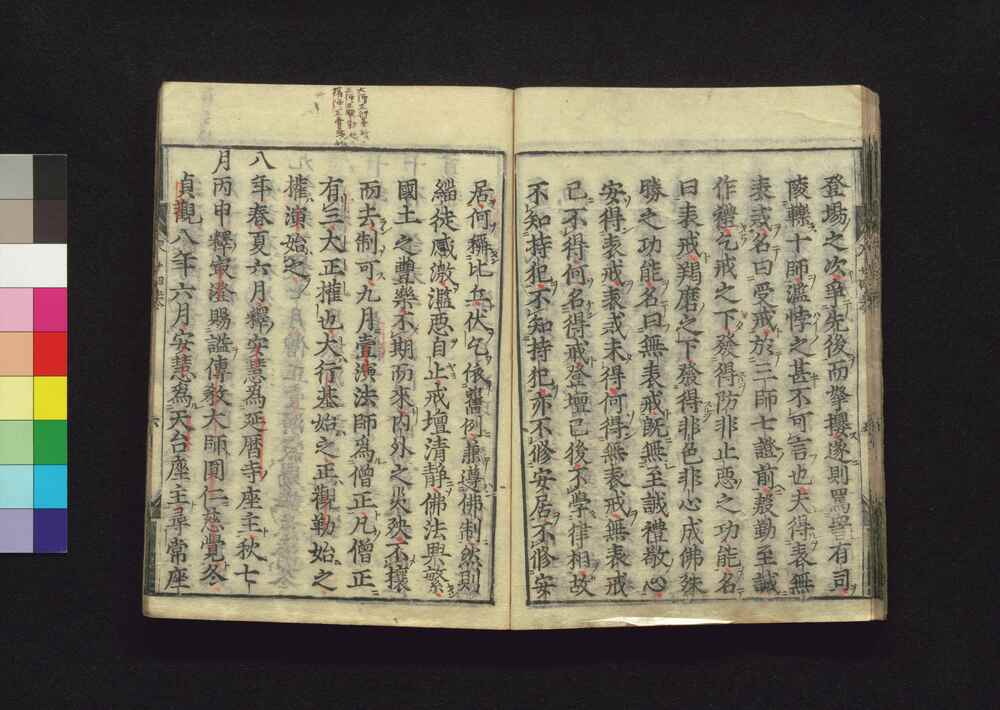 登場之次爭先後而擊攖遂則罵詈有司
陵轢十師濫悖之甚不可言也夫得表無
表或名曰受戒於三師七證前慇勤至誠
作禮乞戒之下發得防非止惡之功能名
曰表戒羯磨之下發得非色非心成佛殊
勝之功能名曰無表戒既無至誠禮敬心
安得表戒表戒未得何得無表戒無表戒
已不得何名得戒登壇已後不學律相故
不知持犯不知持犯亦不修安居不修安
居何稱比丘伏乞依舊例兼遵佛制然則
緇徒感激濫惡自止戒壇清静佛法興繁
國土之豐樂不期而來内外之災殃不攘
而去制可九月壹演法師爲僧正凡僧正
有三大正權也大行基始之正觀勒始之
權演始之
八年春夏六月釋安慧爲延暦寺座主秋七
月丙申釋寂澄賜謚傳教大師圓仁慈覺冬
貞觀八年六月安慧爲天台座主尋常座